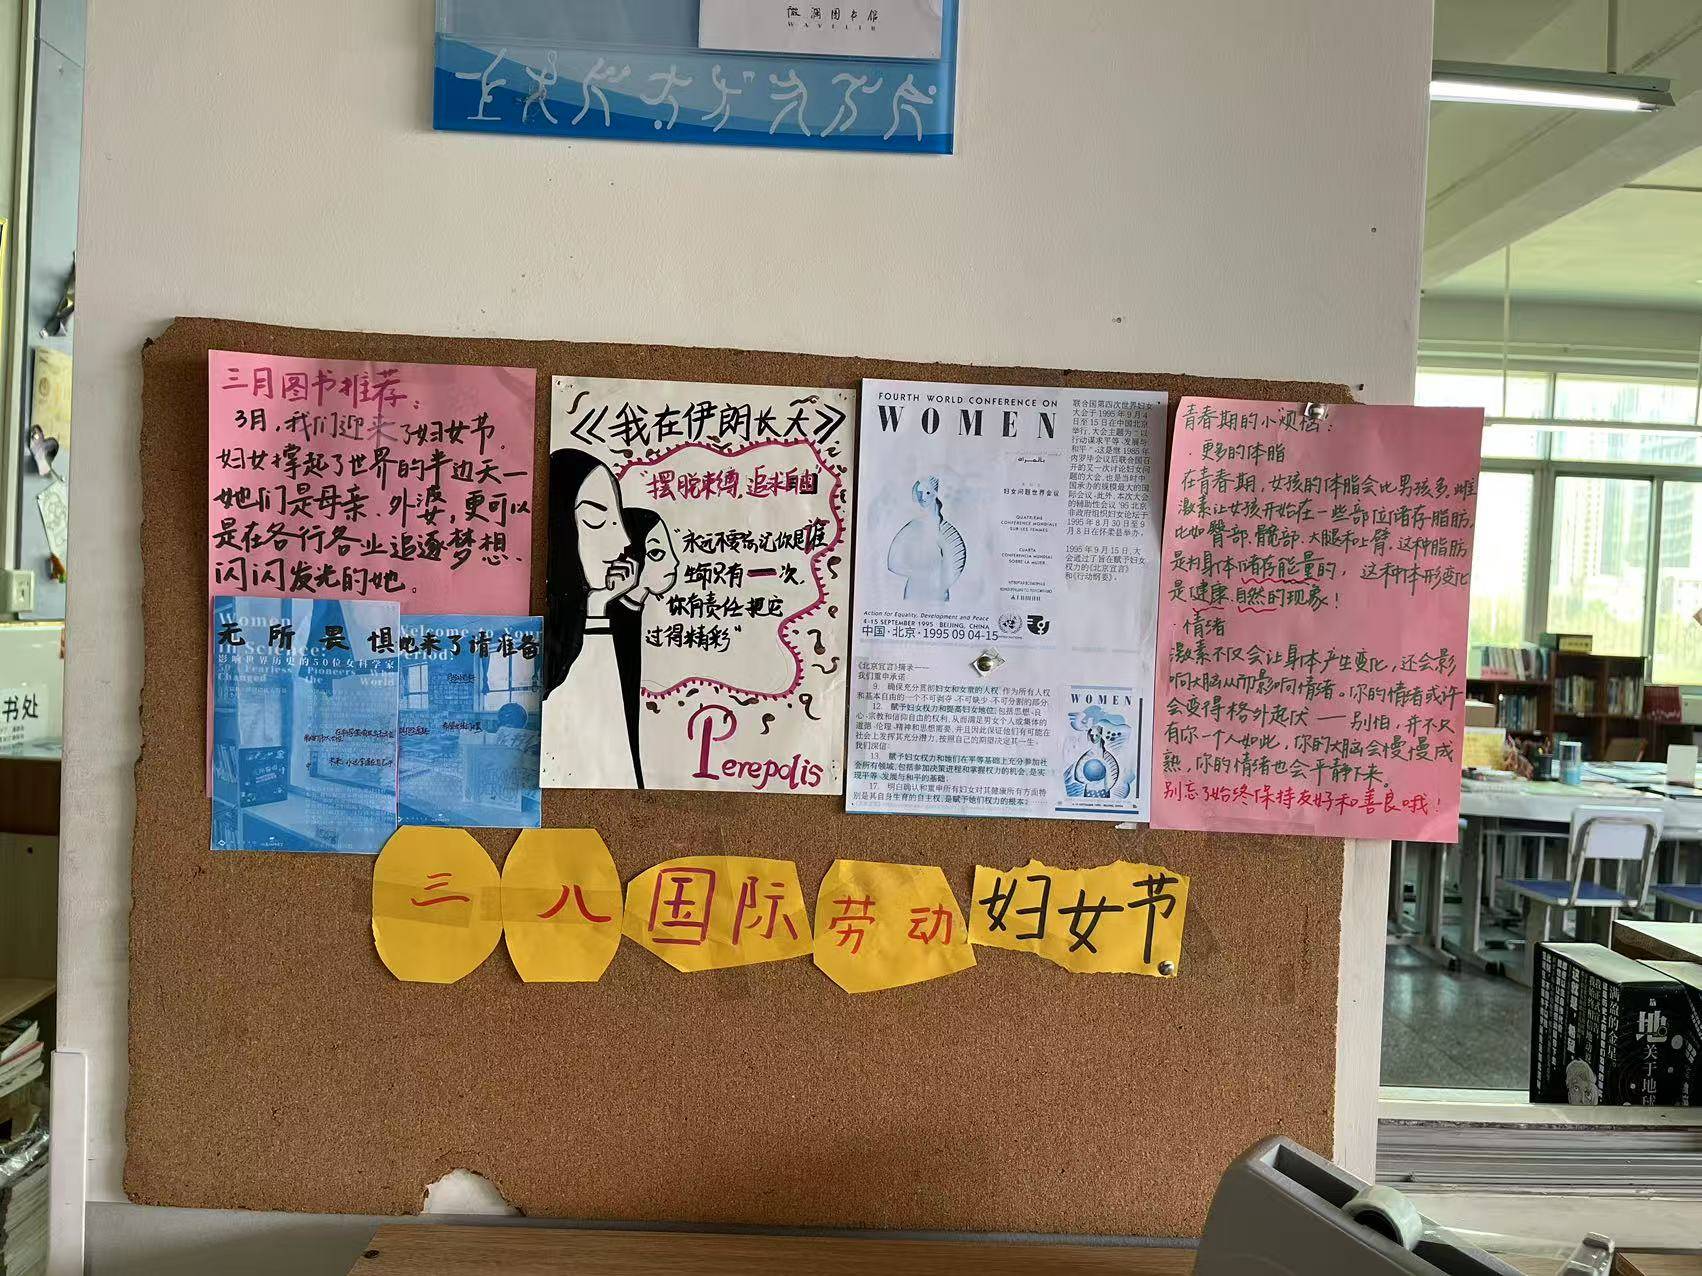 微澜图书馆
三月图书推荐：
3月，我们迎来了妇女节。
妇女撑起了世界的半边天一
她们是母亲、外婆，更可以
是在各行各业追逐梦想、
闪闪发光的她。
Women
in Science:
无所畏惧
影响世界历史的50位女科学家
50 Fearless Pioneers
Changed the World
Welcome to Your
Period!
她来了请准备
《我在伊朗长大》
"摆脱束缚,追求自由"
"永远不要忘记你是谁
生命只有一次,
"你有责任把它
过得精彩"
Perepolis
FOURTH WORLD CONFERENCE ON
WOMEN
妇女问题世界会议
QUATRIÈME
CONFÉRENCE MONDIALE
SUR LES FEMMES
CUARTA
CONFERENCIA MUNDIAL
SOBRE LA MUJER
Action for Equality, Development and Peace
4-15 SEPTEMBER 1995 BEIJING, CHINA
中国·北京·1995 09 04-15
联合国第四次世界妇女
大会于1995年9月4
日至15日在中国北京
举行,大会主题为"以
行动谋求平等、发展与
和平",这是继1985年
内罗毕会议后联合国召
开的又一次讨论妇女问
题的大会,也是当时中
国承办的规模最大的国
际会议。此外,本次大会
的辅助性会议'95北京
非政府组织妇女论坛于
1995年8月30日至9
月8日在怀柔县举办。
1995年9月15日,大
会通过了旨在赋予妇女
权力的《北京宣言》
和《行动纲要》。
《北京宣言》摘录——
我们重申承诺
9. 确保充分贯彻妇女和女童的人权,作为所有人权
和基本自由的一个不可剥夺、不可缺少、不可分割的部分
12. 赋予妇女权力和提高妇女地位,包括思想、良
心、宗教和信仰自由的权利,从而满足男女个人或集体的
道德、伦理、精神和思想需要,并且因此保证他们有可能在
社会上发挥其充分潜力,按照自己的期望决定其一生。
我们深信:
13. 赋予妇女权力和她们在平等基础上充分参加社
会所有领域,包括参加决策进程和掌握权力的机会,是实
现平等、发展与和平的基础;
17. 明白确认和重申所有妇女对其健康所有方面特
别是其自身生育的自主权,是赋予她们权力的根本;
WOMEN
青春期的小烦恼：
·更多的体脂
在青春期，女孩的体脂会比男孩多，雌
激素让女孩开始在一些部位储存脂肪
比如臀部、髋部、大腿和上臂，这种脂肪
是为身体储存能量的，这种体形变化
是健康自然的现象！
·情绪
激素不仅会让身体产生变化，还会影
响大脑从而影响情绪。你的情绪或许
会变得格外起伏——别怕，并不只
有你一个人如此，你的大脑会慢慢成
熟，你的情绪也会平静下来。
别忘了始终保持友好和善良哦！
三八国际劳动妇女节
书处
满盈的金星
地
关于地球